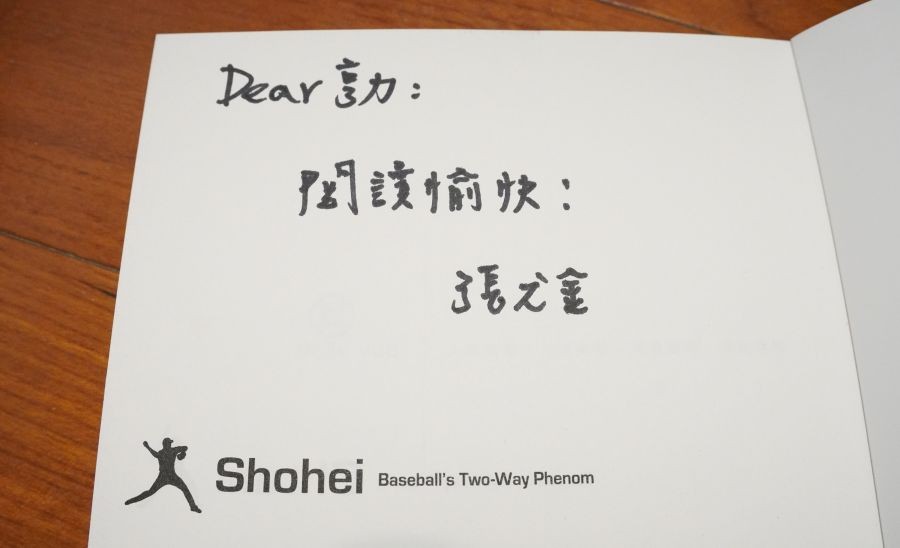 Dear 勍:
閱讀愉快:
張尤金
Shohei Baseball's Two-Way Phenom